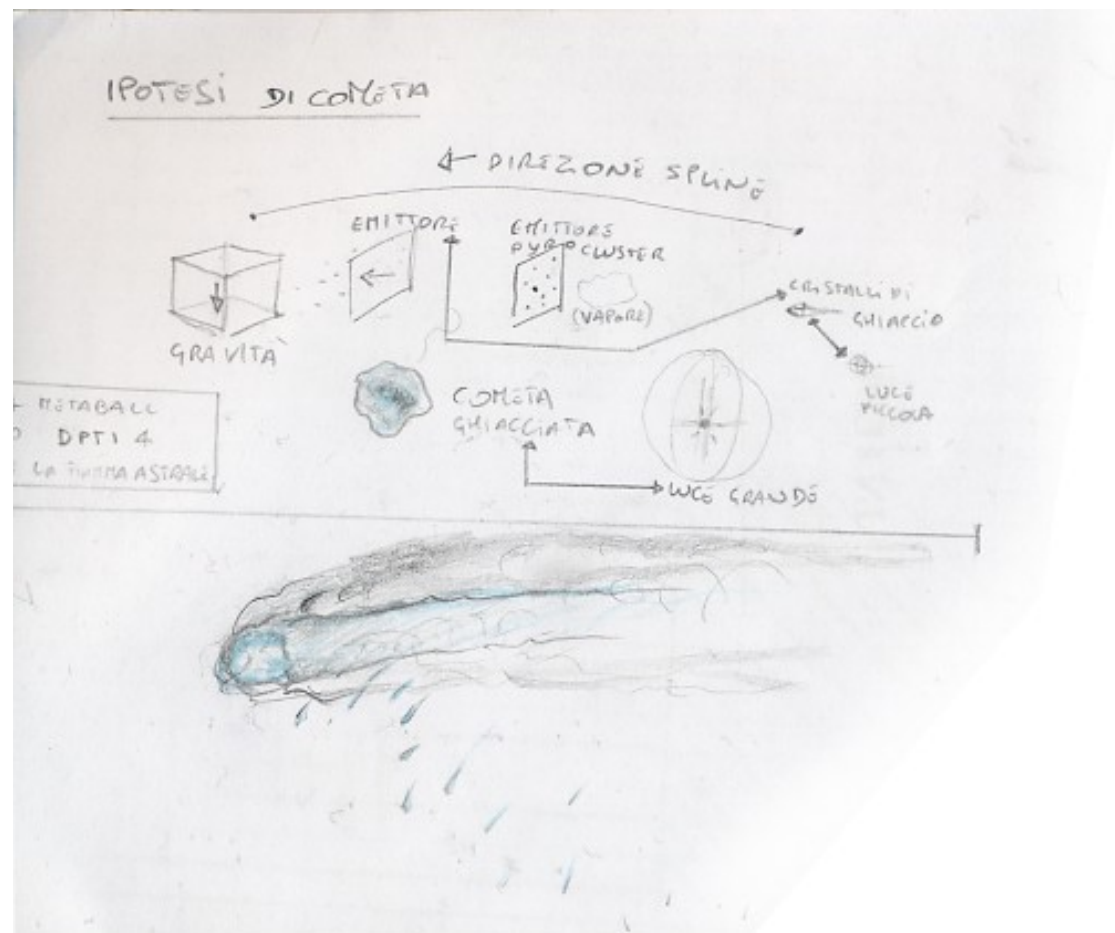 IPOTESI DI COMETA
← DIREZIONE SPLINE
EMITTORE
EMITTORE
PYROCLUSTER
(VAPORE)
GRAVITÀ
CRISTALLI DI
GHIACCIO
LUCE
PICCOLA
COMETA
GHIACCIATA
LUCE GRANDE
METABALL
DPTI 4
LA FIAMMA ASTRALE